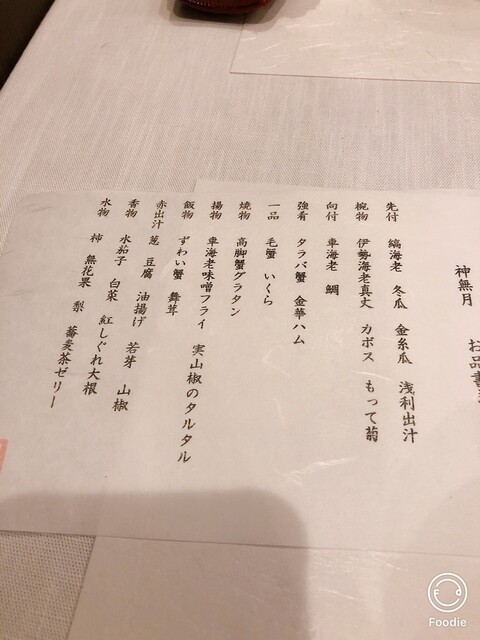 神無月 お品書
先付 縞海老 冬瓜 金糸瓜 浅利出汁
椀物 伊勢海老真丈 カボス もって菊
向付 車海老 鯛
強肴 タラバ蟹 金華ハム
一品 毛蟹 いくら
焼物 高脚蟹グラタン
揚物 車海老味噌フライ 実山椒のタルタル
飯物 ずわい蟹 舞茸
赤出汁 葱 豆腐 油揚げ 若芽 山椒
香物 水茄子 白菜 紅しぐれ大根
水物 柿 無花果 梨 蕎麦茶ゼリー
Foodie